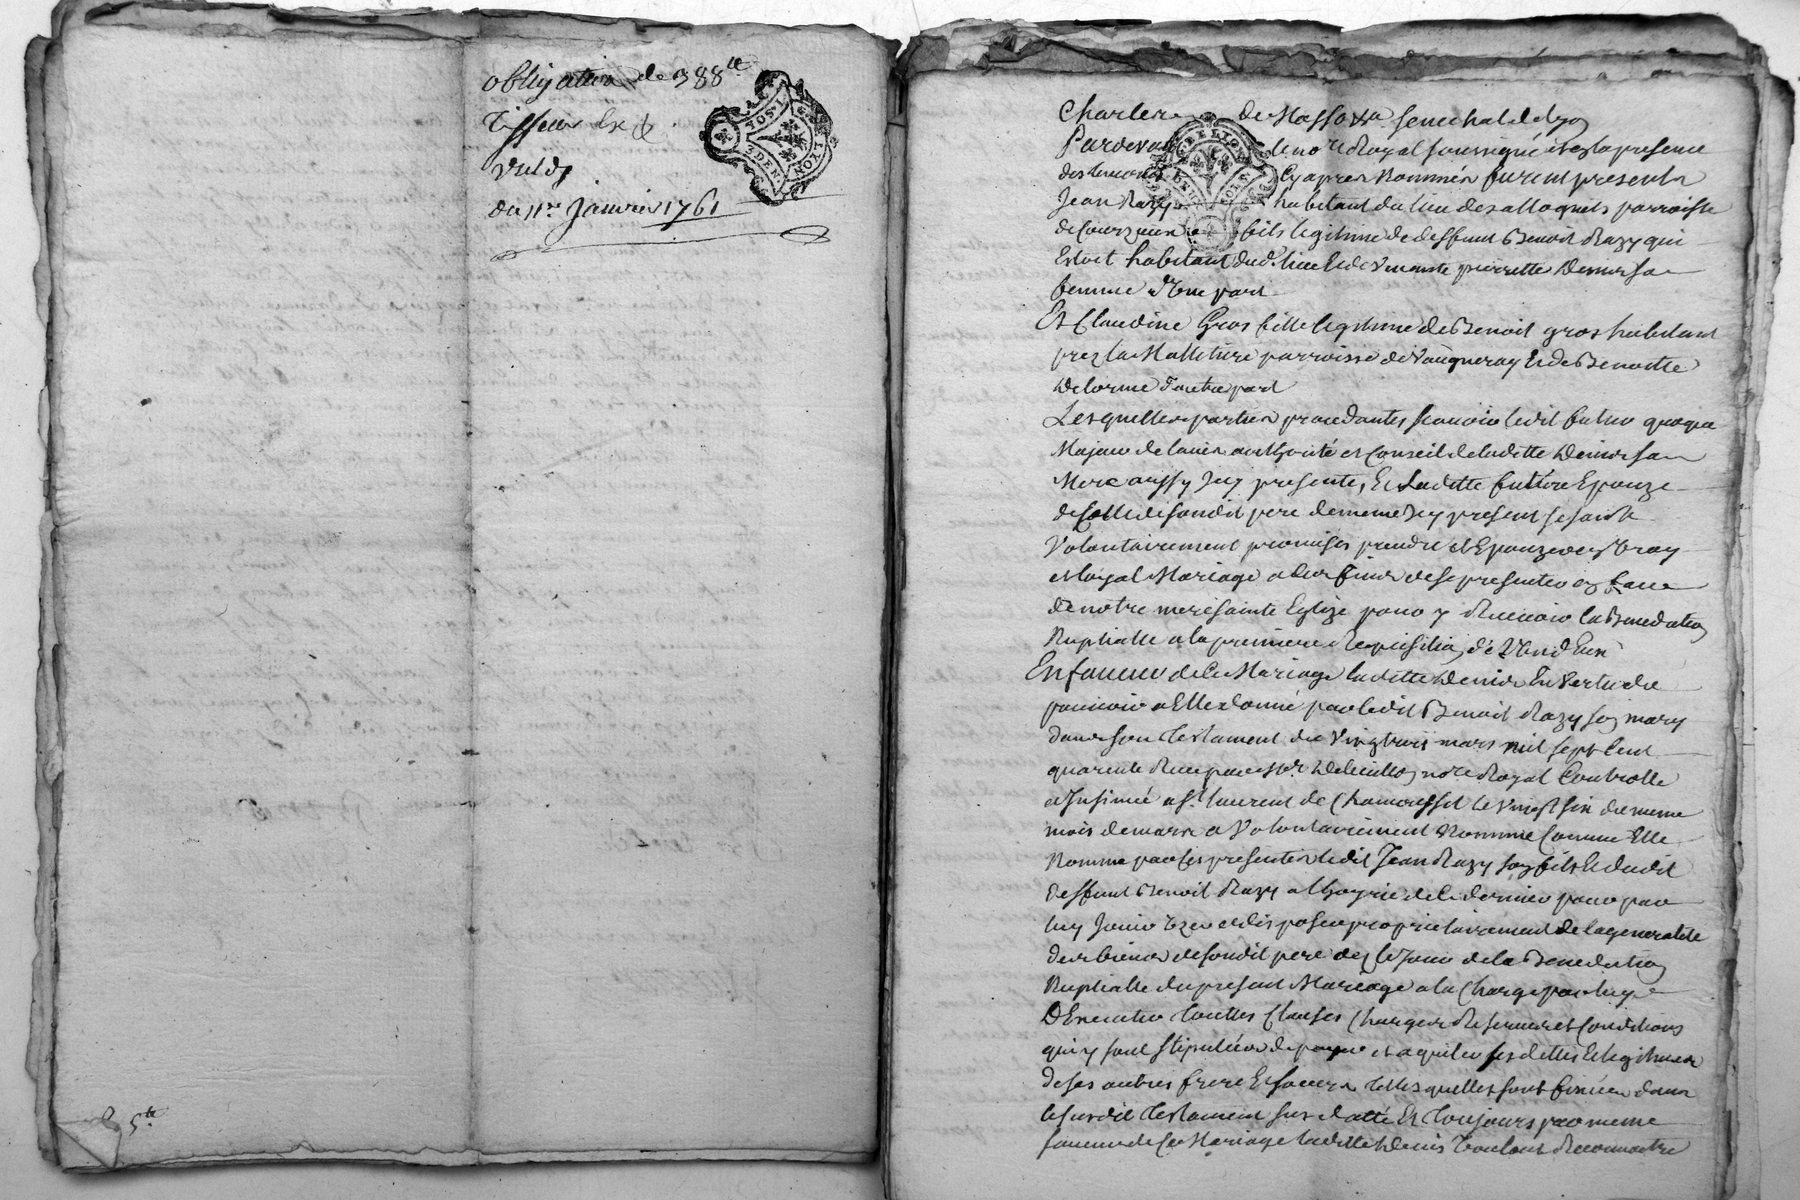 obligation de 388 lt
du 11e Janvier 1761
LYON
3 DEN
5
Charles de Masso senechal de Lyon
Pardevant le nore Royal soussigné et en la presence
des temoins cy apres nommés furent presents
Jean Razy habitant du lieu des allognets parroisse
de Courzieux fils legitime de deffunt Benoit Razy qui
Estoit habitant dud. lieu Et de vivante pierrette Denis sa
femme d'Une part
Et Claudine Gros fille legitime de Benoit gros habitant
prez la Malleture parroisse de Vaugneray Et de Benoitte
Delorme d'autre part
Lesquelles parties procedantes scavoir ledit futur quoique
Majeur de l'avis authorité et Conseil de laditte Denis sa
Mere aussy Icy presente, Et Laditte future Epouze
de celle de sondit pere de meme Icy present se sont
Volontairement promises prendre et Epouzer en Vray
et loyal Mariage a leur fin de se presenter en face
de notre mere sainte Eglize pour y Recevoir la Benediction
Nuptialle a la premiere Requisition de l'Un d'Eux
En faveur de Ce Mariage laditte Denis En Vertu du
pouvoir a Elle donné par ledit Benoit Razy son mary
dans son testament du vingt trois mars mil sept Cent
quarente Receu par Mr nore Royal Controllé
et Insinué a St laurent de Chamousset le vingt six du meme
mois de mars a Volontairement Nommé Comme Elle
Nomme par ces presentes ledit Jean Razy son fils Et dudit
deffunt Benoit Razy a l'hoyrie de Ce dernier pour par
luy Jouir Uzer et disposer proprietairement de la generalité
des biens de sondit pere dez le Jour de la Benediction
Nuptialle du present Mariage a la Charge par luy
D'Executer touttes Clauses Charges Reserves et Conditions
qui y sont stipulées de payer et aquiter ses dettes Et legitimes
de ses autres frere Et soeurs telles quelles sont fixées dans
le susdit testament sus datté Et toujours par meme
faveur de Ce Mariage laditte Denis Voulant Reconnoitre